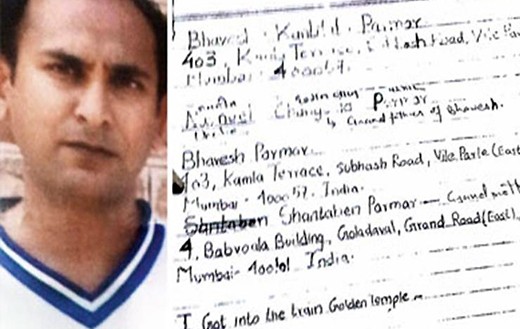 Bhavesh Kantilal Parmar
403, Kamla Terrace, Subhash Road, Vile Par
Mumbai - 400057.
is Grand father of Bhavesh.
Bhavesh Parmar
403, Kamla Terrace, Subhash Road, Vile Parle (East
Mumbai - 400057. India.
Shantaben Shantaben Parmar — Grand moth
4, Babvoala Building, Goladaval, Grand Road (East)
Mumbai - India.
I Got into the train Golden Temple